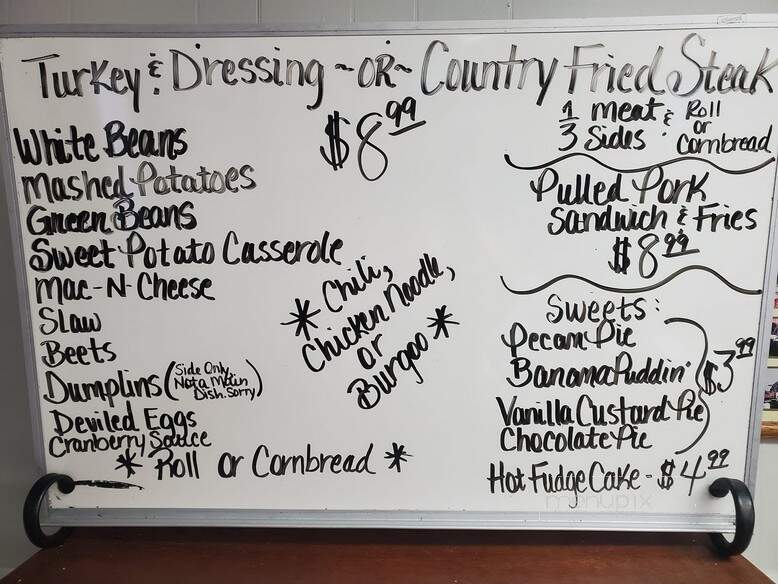 Turkey & Dressing ~OR~ Country Fried Steak
$8.99
1 meat & Roll
3 Sides or Cornbread
White Beans
Mashed Potatoes
Green Beans
Sweet Potato Casserole
Mac-N-Cheese
Slaw
Beets
Dumplins (Side Only. Not a Main Dish. Sorry)
Deviled Eggs
Cranberry Sauce
* Roll or Cornbread *
* Chili,
Chicken Noodle,
or
Burgoo *
Pulled Pork
Sandwich & Fries
$8.99
Sweets:
Pecan Pie
Banana Puddin'
Vanilla Custard Pie
Chocolate Pie
$3.99
Hot Fudge Cake - $4.99
menupix